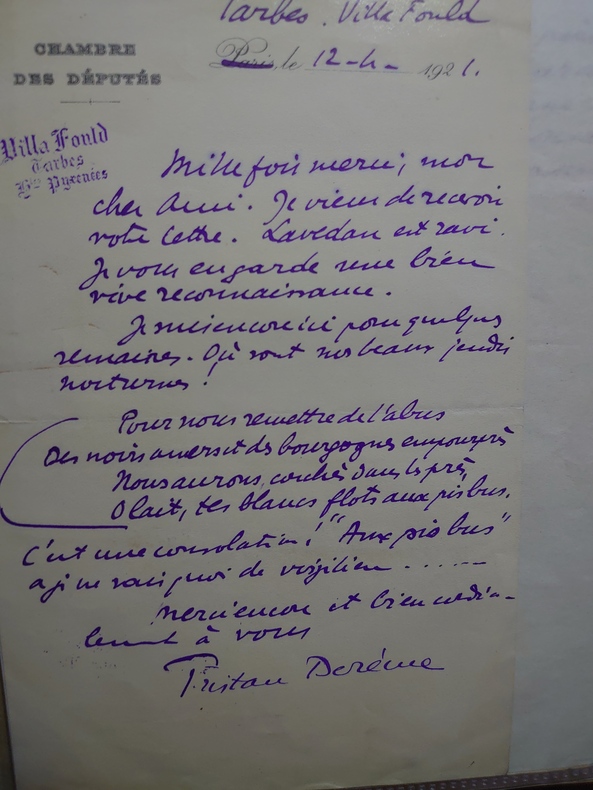 Tarbes. Villa Fould
CHAMBRE
DES DÉPUTÉS
Paris, le 12-4- 1921.
Villa Fould
Tarbes
Htes Pyrénées
Mille fois merci, mon
cher Ami. Je viens de recevoir
votre lettre. Lavedan est ravi.
Je vous en garde une bien
vive reconnaissance.
Je suis encore ici pour quelques
semaines. Où sont nos beaux jeudis
nocturnes !
Pour nous remettre de l'abus
Des noirs amers et des bourgognes empourprés
Nous aurons, couchés dans les prés,
O lait, tes blancs flots aux pis bus.
C'est une consolation ! "Aux pis bus"
a je ne sais quoi de virgilien ......
Merci encore et bien cordia-
lement à vous
Tristan Derème